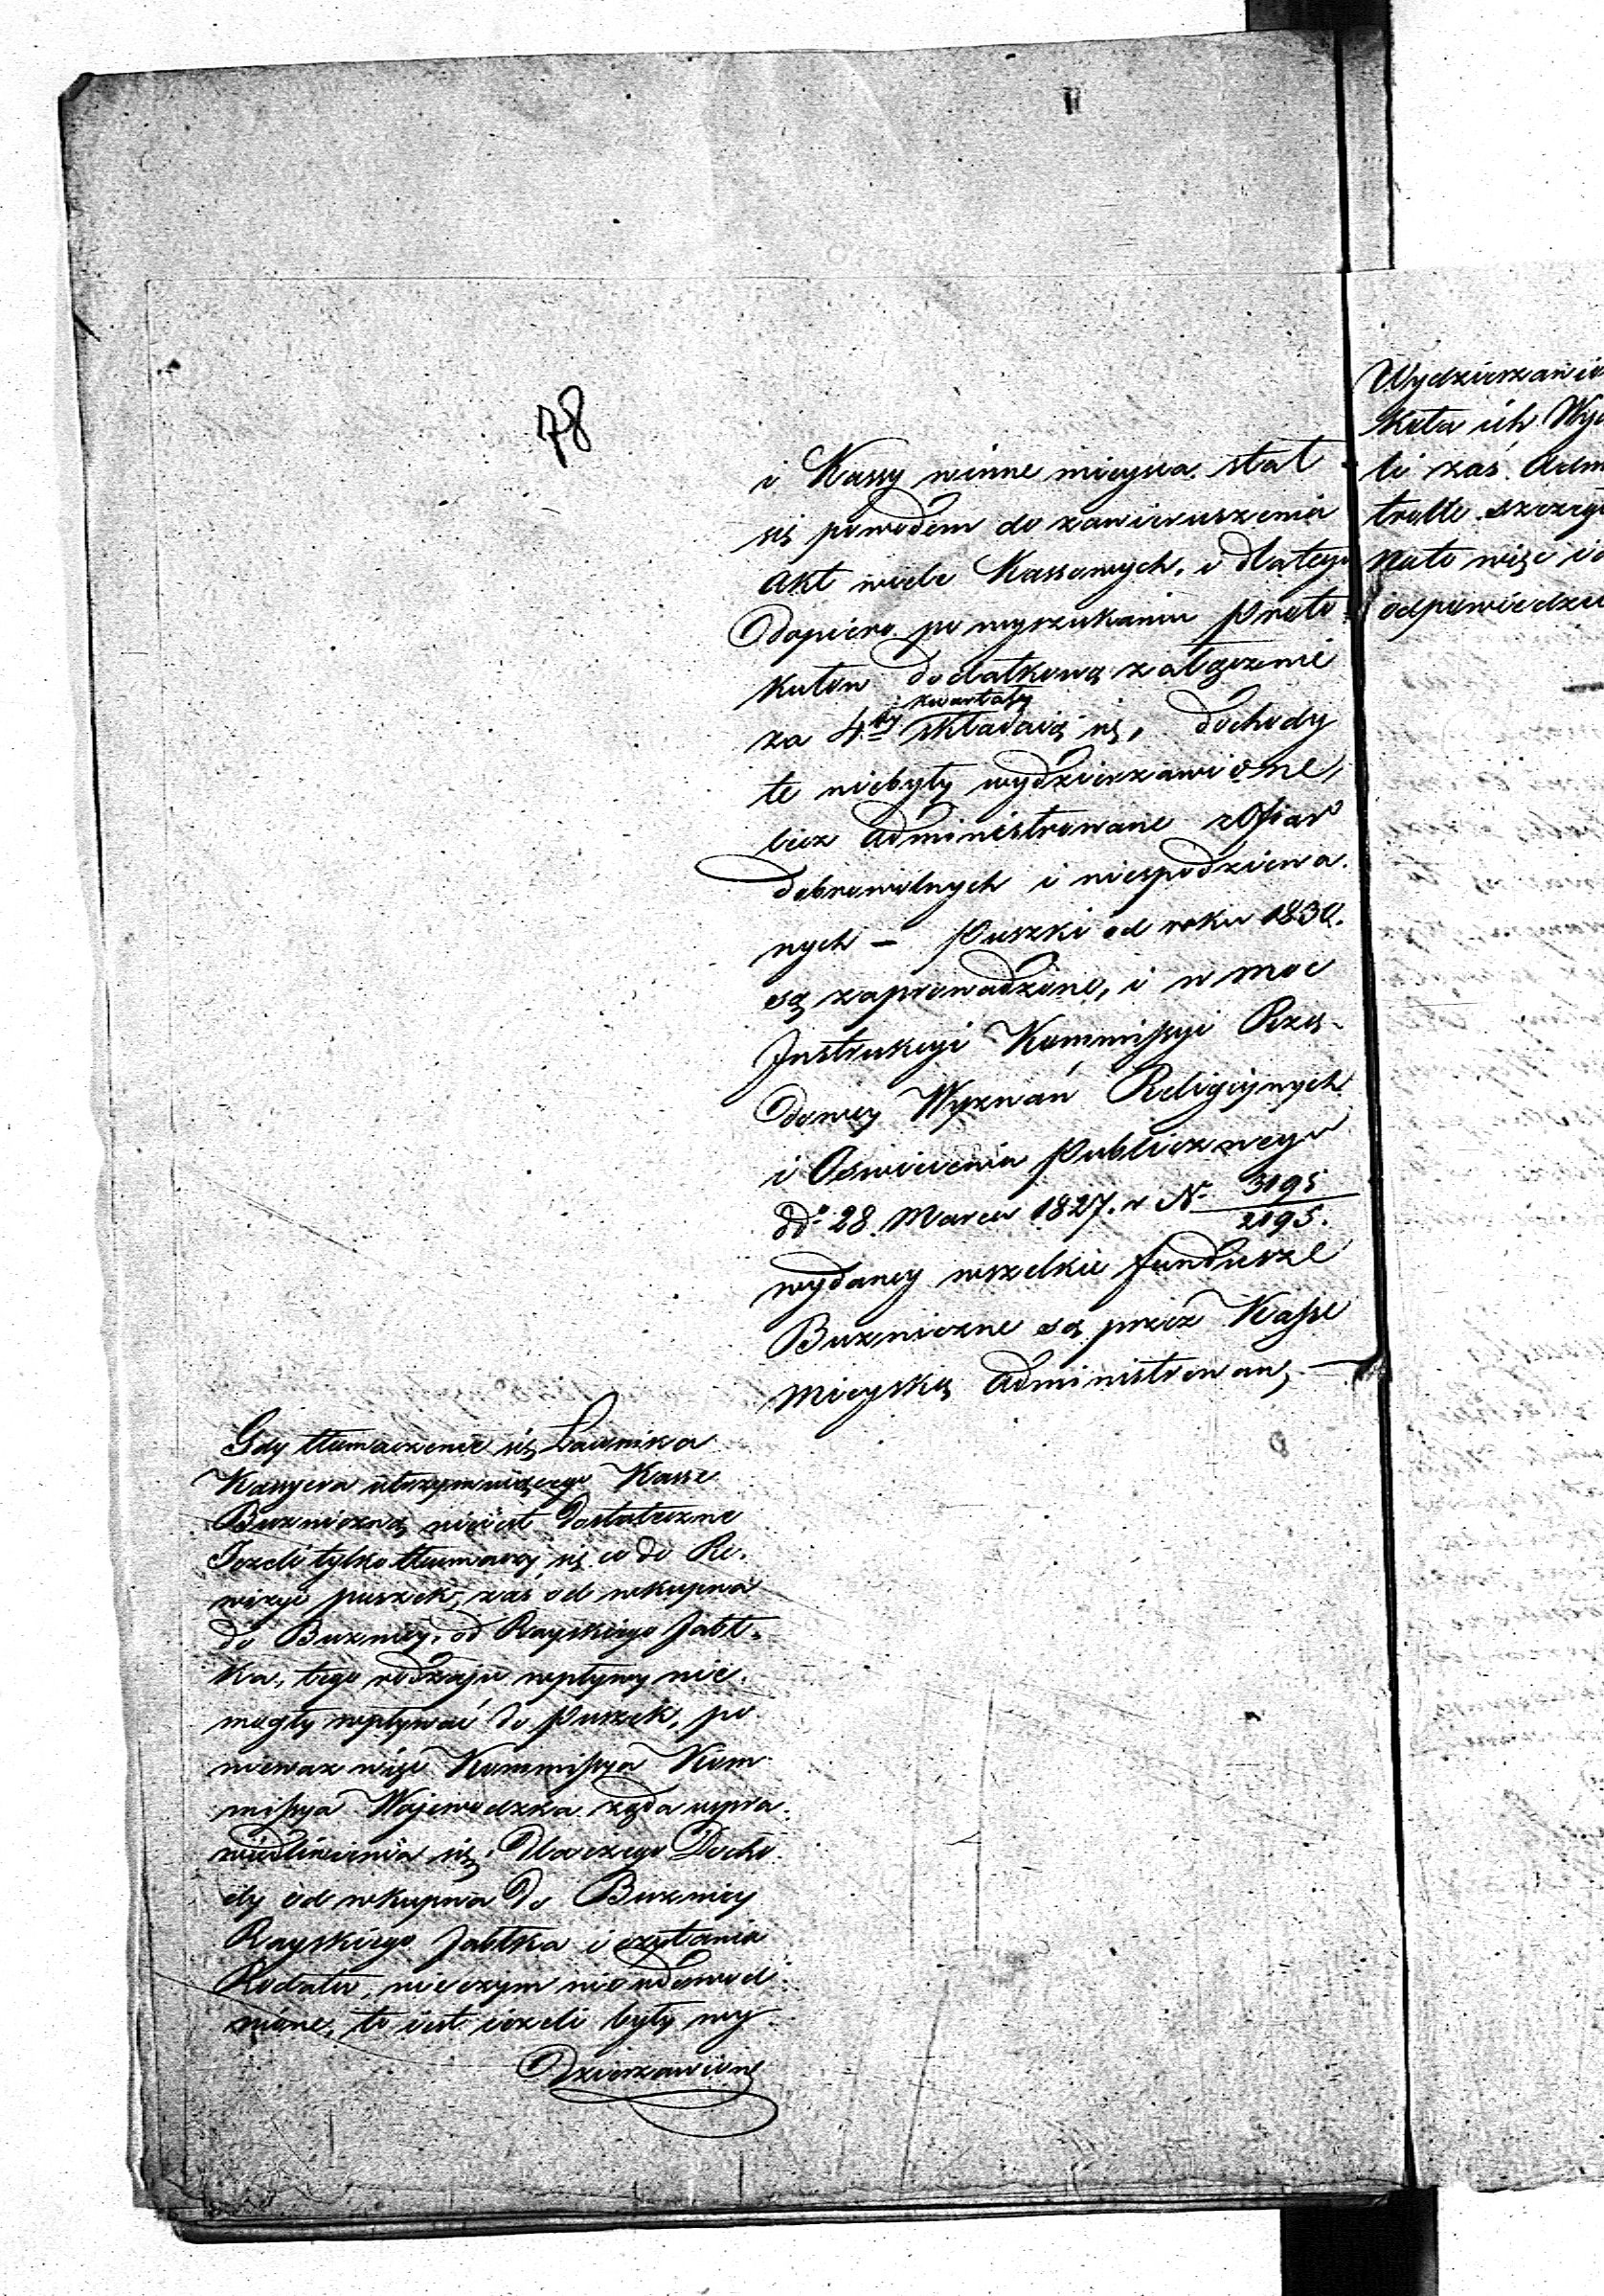 78
i Kassy winne mieysca. stał
się powodem do zawieruszenia
akt wiele Kassowych, i dlatego
Dopiero po wyszukaniu Proto-
kułow dodatkową załączenie
kwartały
za 4ry składaią się, dochody
te niebyły wydzierzawione,
lecz administrowane z Ofiar
dobrowolnych i niespodziewa-
nych – Puszki od roku 1830.
są zaprowadzone, i w moc
Instrukcyi Kommissyi Rzą-
dowey Wyznań Religiynych
i Oswiecenia Publicznego
ddo 28. Marca 1827. r N. 3195
2195.
wydaney wszelkie fundusze
Buzniczne są przez Kasse
Mieyską administrowan,
Gdy tłumaczenie się Ławnika
Kassyera utrzymuiącego Kasse
Buzniczną nieiest Dostateczne
Jezeli tylko tłumaczy się co do Re-
wizyi puszek, zas od wkupna
do Buznicy, od Rayskiego Jabł-
ka, tego rodzaju wpływy nie-
mogły wpływać do Puszek, po
niewaz więc Kommissya Kom
missya Wojewodzka ządа uspra-
wiedliwienia się, Dlaczego Docho
dy od wkupna Do Buznicy
Rayskiego Jabłka i czytania
Rodału, nieczym nieudowod-
nione, to iest iezeli były wy-
Dzierzawione
Wydzierzawio
Kuła ich Wy
li zaś Adm
trolle szczeg
Nato więc i
odpowiedzi